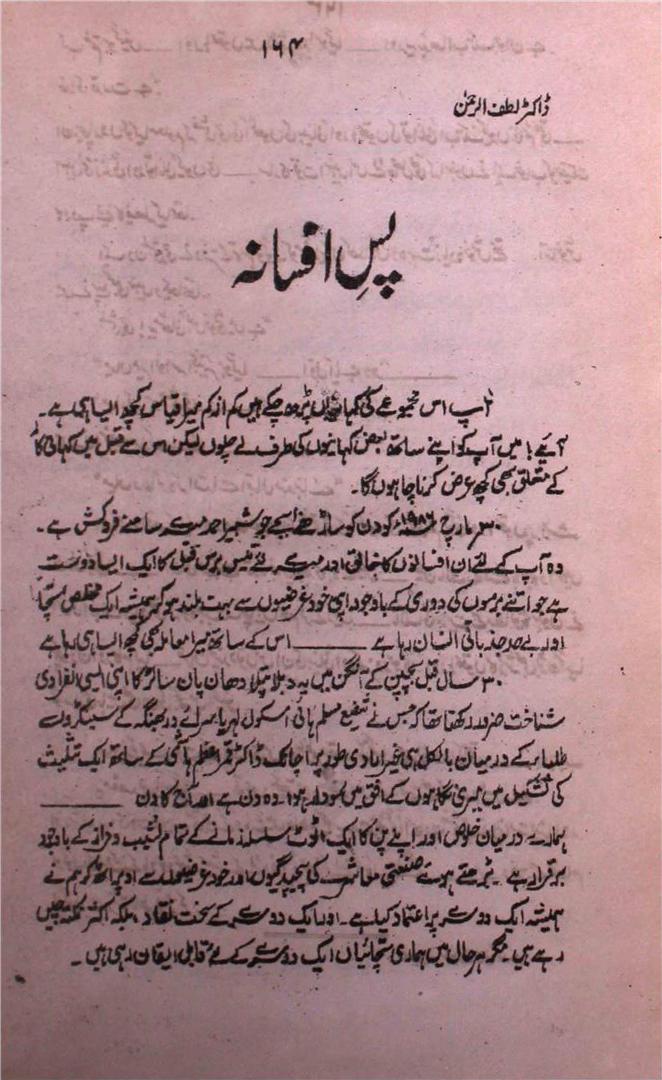 ۱۶۴
ڈاکٹر لطف الرحمٰن
پسِ افسانہ
آپ اس مجموعے کی کہانیاں پڑھ چکے ہیں کم از کم میرا قیاس کچھ ایسا ہی ہے۔
آیئے! میں آپ کو اپنے ساتھ بعض کہانیوں کی طرف لے چلوں لیکن اس سے قبل میں کہانی کار
کے متعلق بھی کچھ عرض کرنا چاہوں گا۔
۳۰ مارچ ۱۹۸۶ء کو دن کو ساڑھے بجے جو شمیر احمد میرے سامنے فروکش ہے۔
وہ آپ کے لئے ان افسانوں کا خالق اور میرے لئے تیس برس قبل کا ایک ایسا دوست
ہے جو اتنے برسوں کی دوری کے باوجود اپنی خود غرضیوں سے بہت بلند ہو کر ہمیشہ ایک مخلص سچا
اور بے حد جذباتی انسان رہا ہے ______ اس کے ساتھ میرا معاملہ بھی کچھ ایسا ہی رہا ہے
۳۰ سال قبل بچپن کے آنگن میں یہ دبلا پتلا دھان پان سا لڑکا اپنی ایسی انفرادی
شناخت ضرور رکھتا تھا کہ جس نے شفیع مسلم ہائی اسکول لہریا سرائے دربھنگہ کے سینکڑوں
طلباء کے درمیان بالکل ہی غیر ارادی طور پر اچانک ڈاکٹر قمر اعظم ہاشمی کے ساتھ ایک تثلیث
کی تشکیل میں میری نگاہوں کے افق میں نمودار ہوا۔ وہ دن ہے اور آج کا دن ______
ہمارے درمیان خلوص اور اپنے پن کا ایک اٹوٹ سلسلہ زمانے کے تمام نشیب و فراز کے باوجود
برقرار ہے۔ بڑھتے ہوئے صنعتی معاشرے کی پیچیدگیوں اور خود غرضیوں سے اوپر اٹھ کر ہم نے
ہمیشہ ایک دوسرے پر اعتماد کیا ہے۔ اور ایک دوسرے کے سخت نقاد، بلکہ اکثر نکتہ چیں
رہے ہیں۔ مگر ہر حال میں ہماری سچائیاں ایک دوسرے کے لئے قابل ایقان رہی ہیں۔